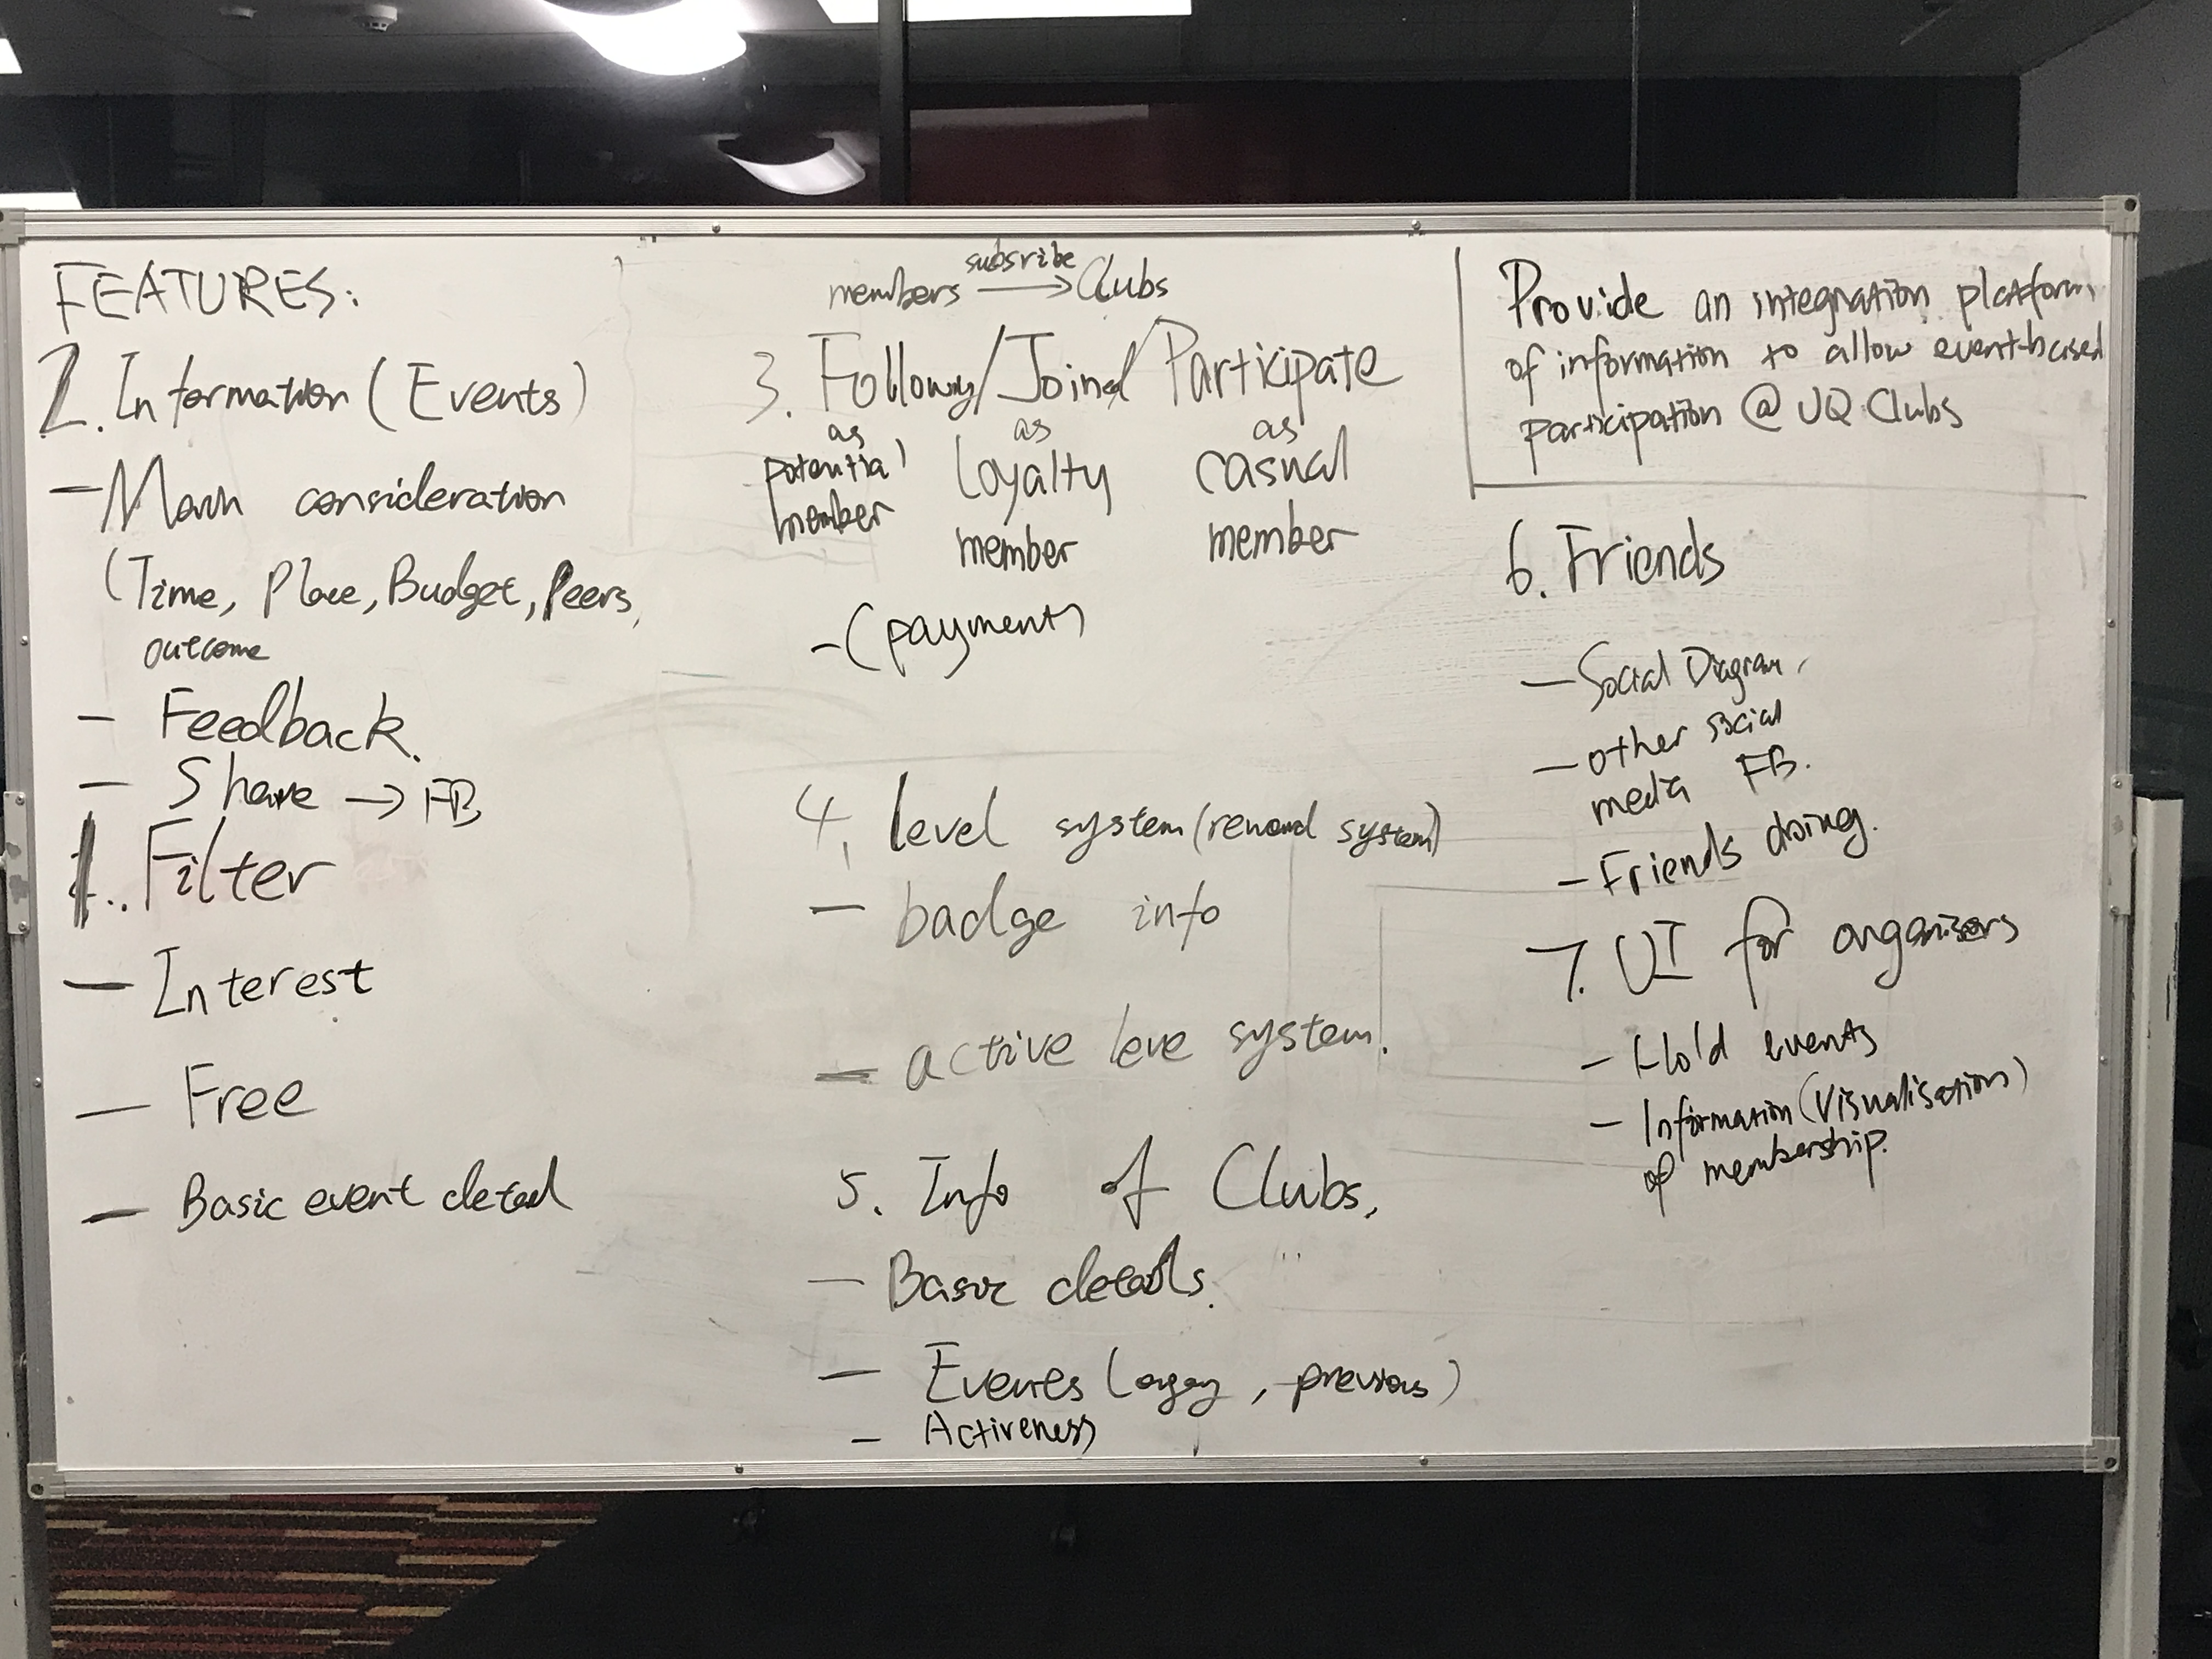 FEATURES:
2. Information (Events)
- Main consideration
(Time, Place, Budget, Peers,
outcome
- Feedback.
- Share → FB
1. Filter
- Interest
- Free
- Basic event detail
subsribe
members → Clubs
3. Following/Joined/Participate
as as as
potential loyalty casual
member member member
- (payment)
4. level system (reward system)
- badge info
- active leve system.
5. Info of Clubs.
- Basic details.
- Events ( , previous)
- Activeness
Provide an integration platform
of information to allow event-based
participation @ UQ Clubs
6. Friends
- Social Diagram.
- other social
media FB.
- Friends doing.
7. UI for organisers
- Hold events
- Information (Visualisation)
of membership.